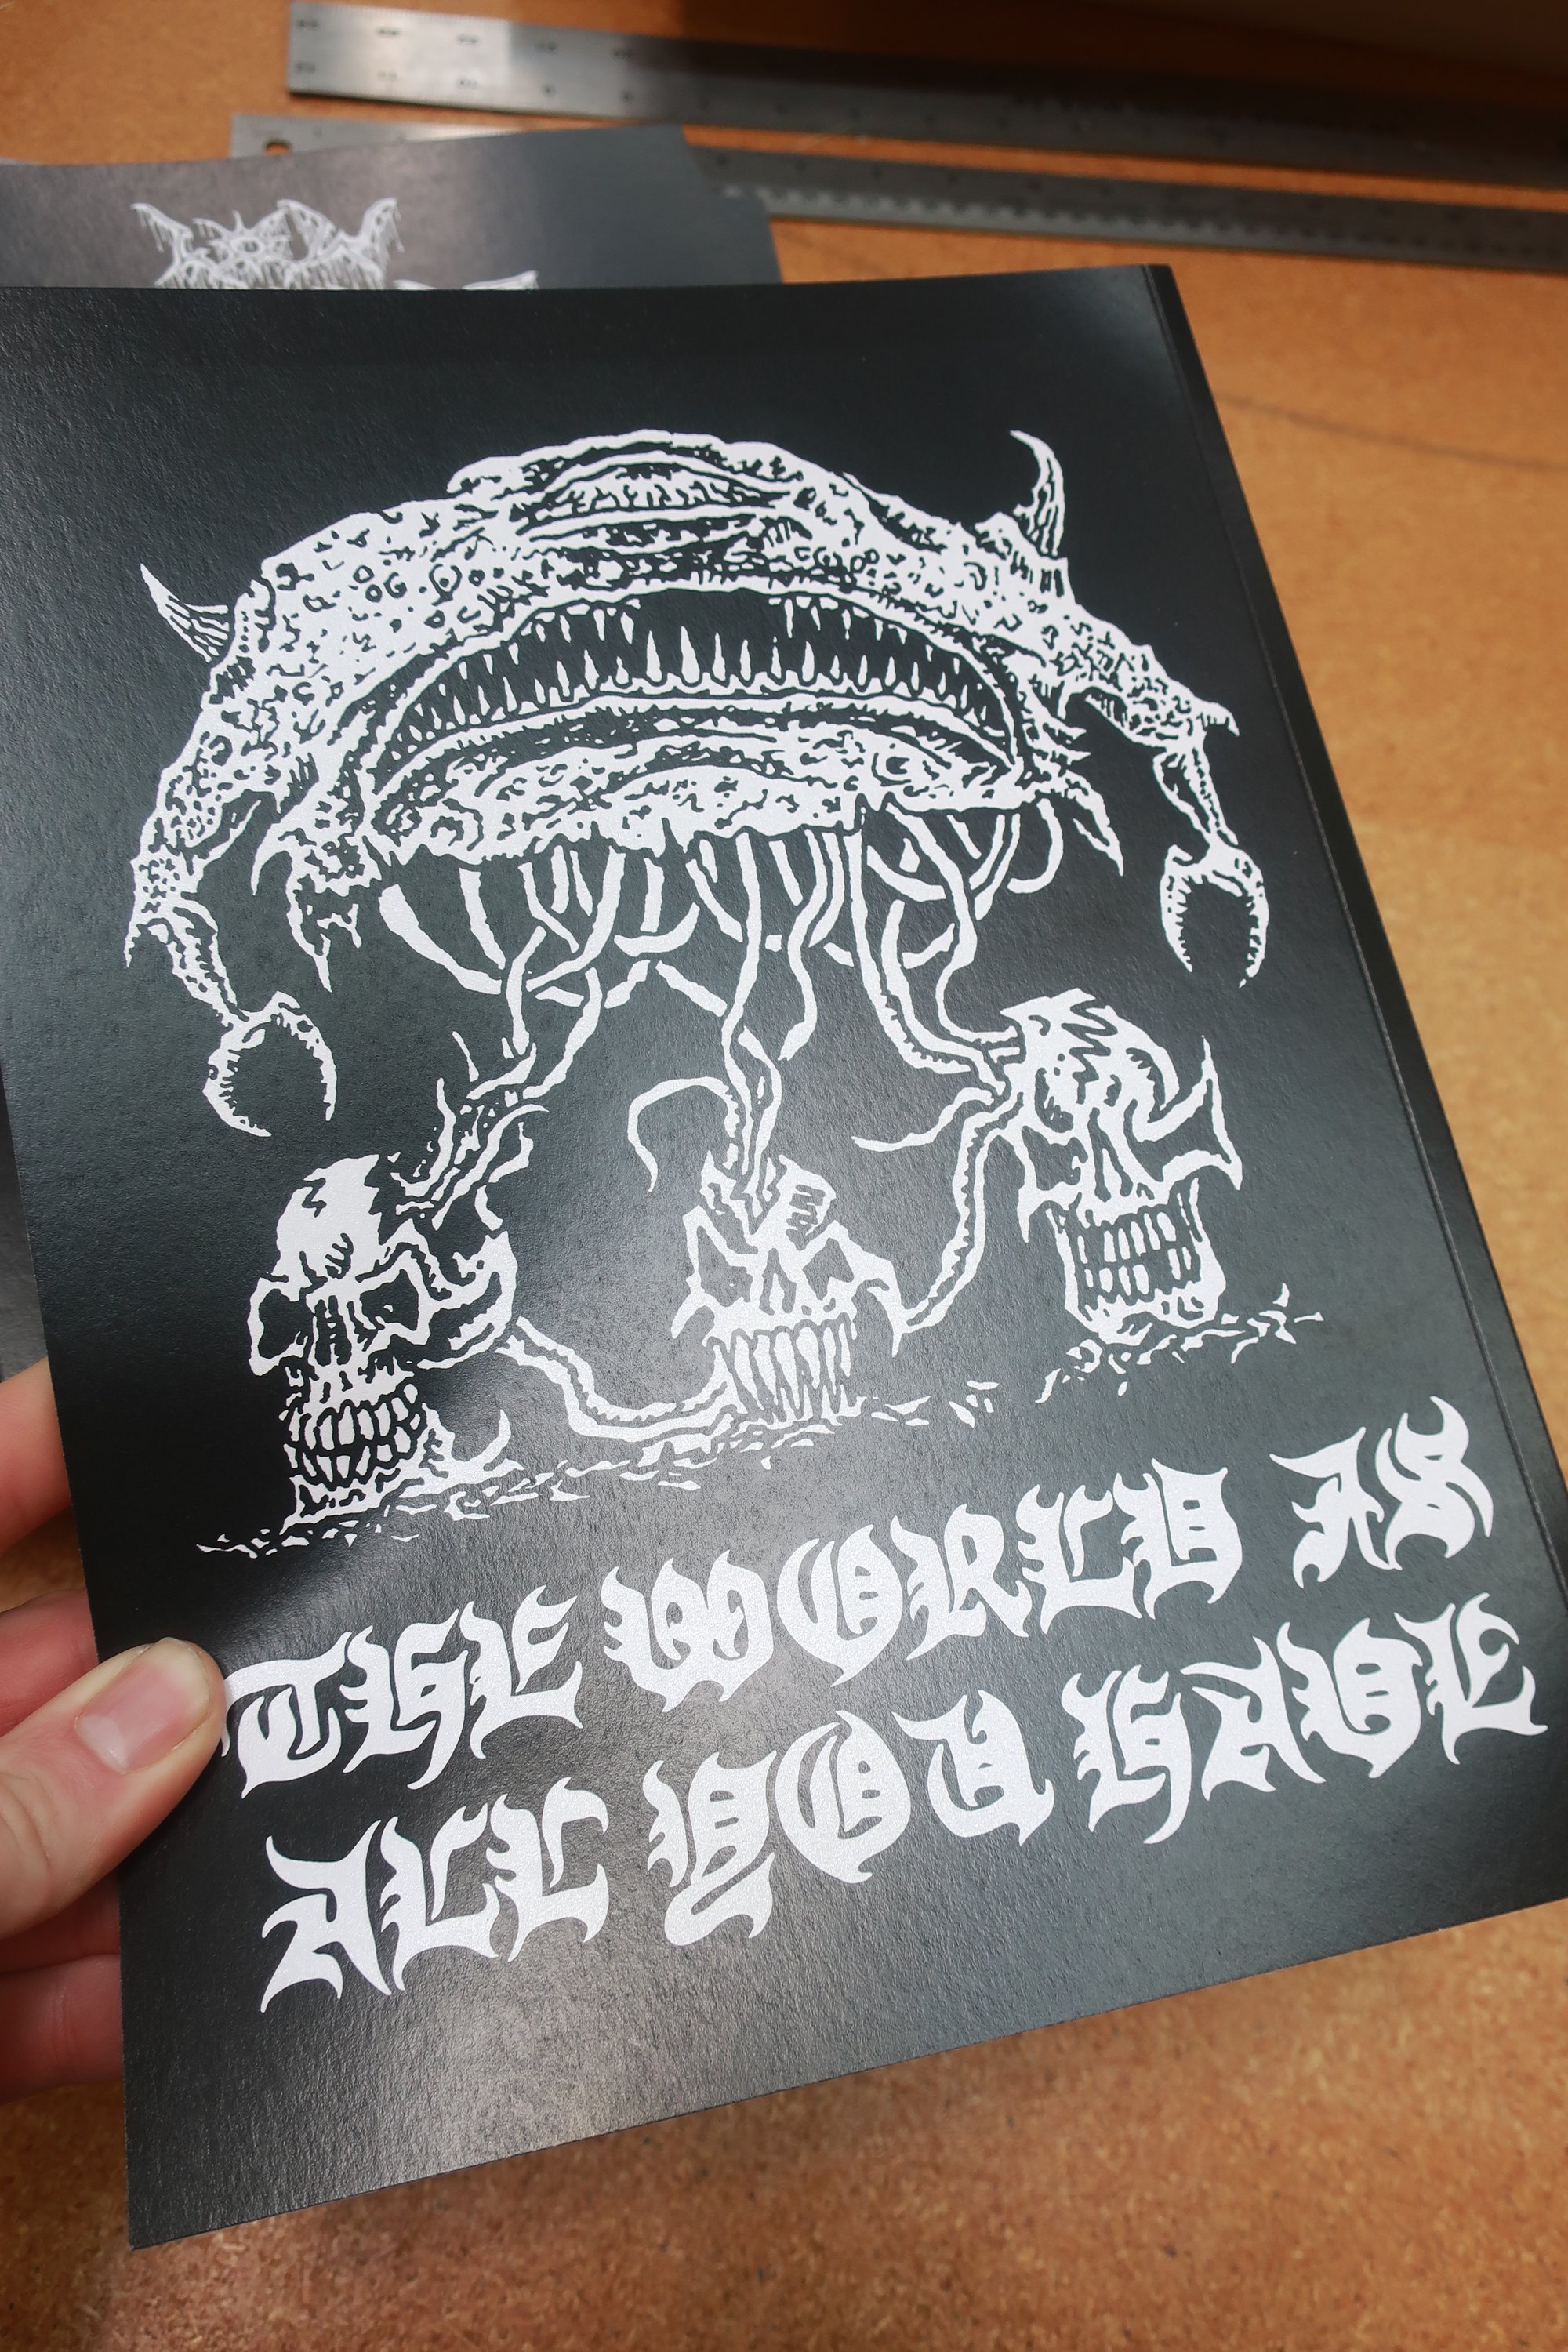 THE WORLD IS
ALL YOU HAVE